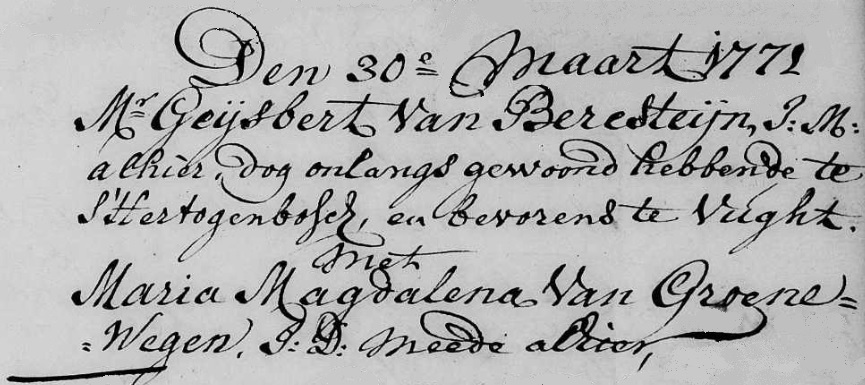 Den 30e Maart 1771
Mr Geijsbert Van Beresteijn, J: M:
alhier, dog onlangs gewoond hebbende te
S'Hertogenbosch, en bevorens te Vught.
met
Maria Magdalena Van Groene=
=Wegen. J: D: meede alhier,